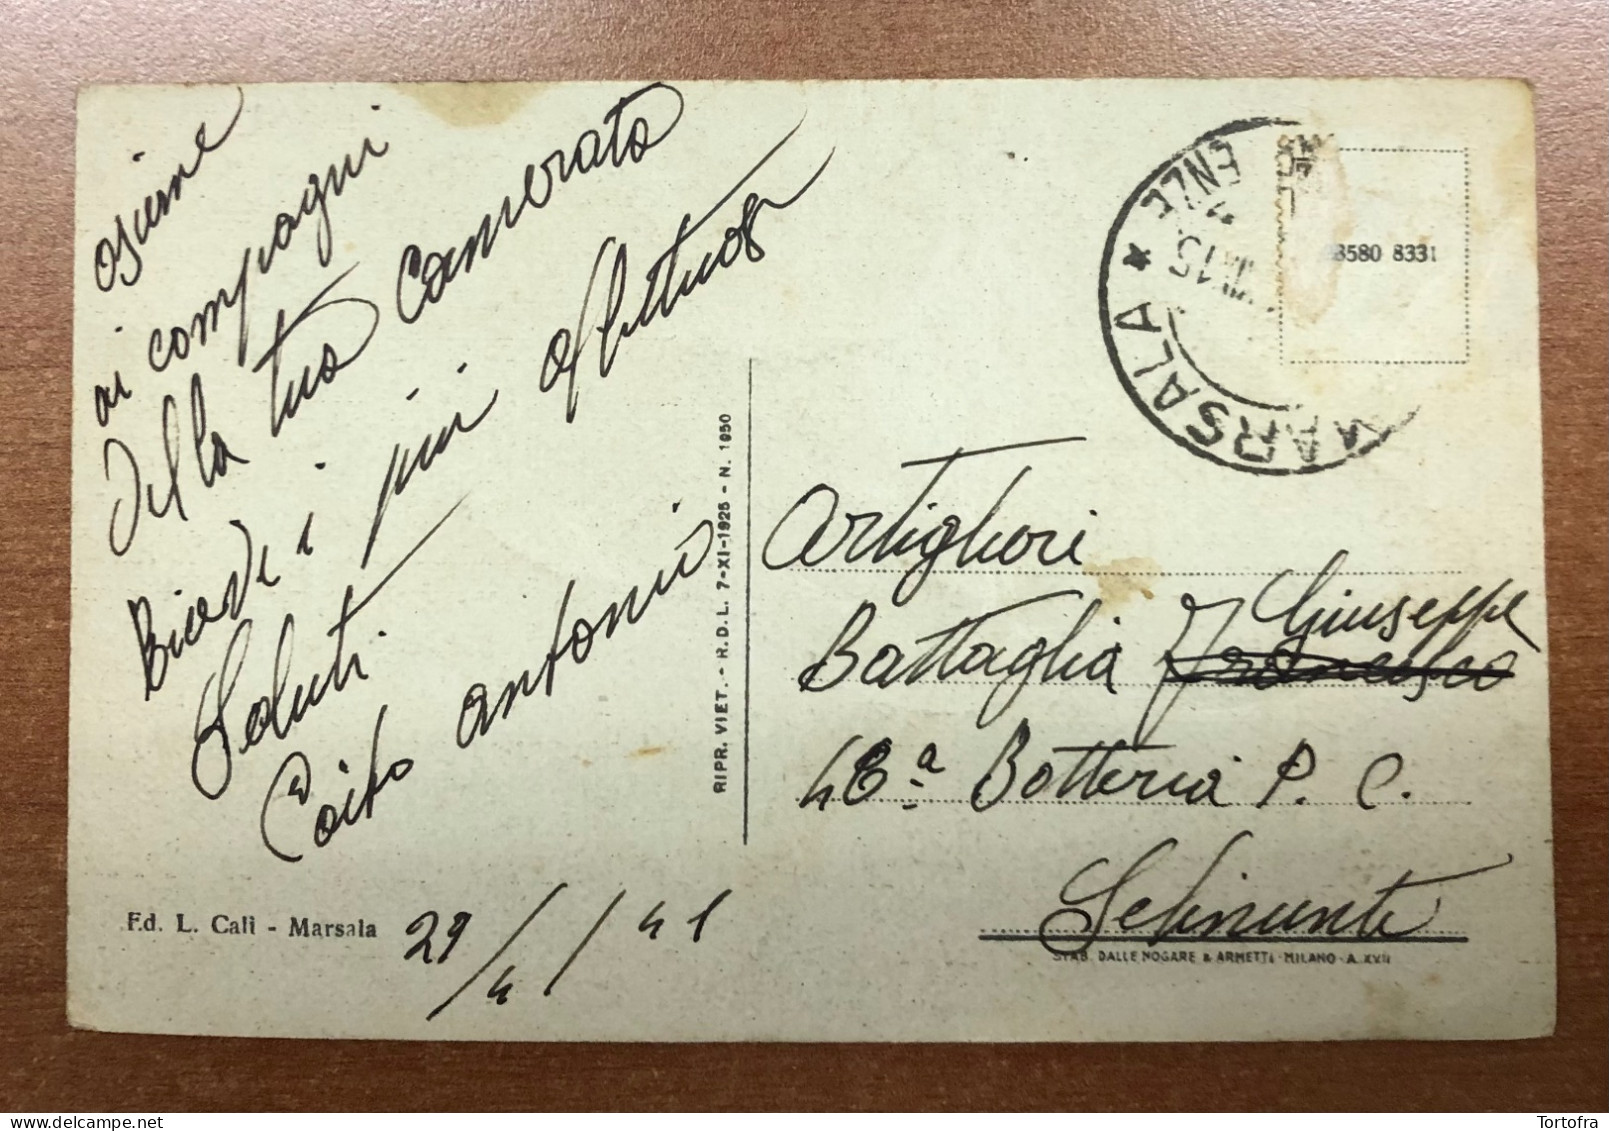 assieme
ai compagni
della tua Camerata
Ricevi i più affettuosi
Saluti
Caito Antonio
29/4/41
Ed. L. Calì - Marsala
RIPR. VIET. - R.D.L. 7-XI-1925 - N. 1950
MARSALA * 
ENZE
15
8580 8331
Artigliere
Battaglia Giuseppe
Francesco
48ª Batteria P. C.
Selinunte
STAB. DALLE NOGARE & ARMETTI - MILANO - A. XVII
Tortofra